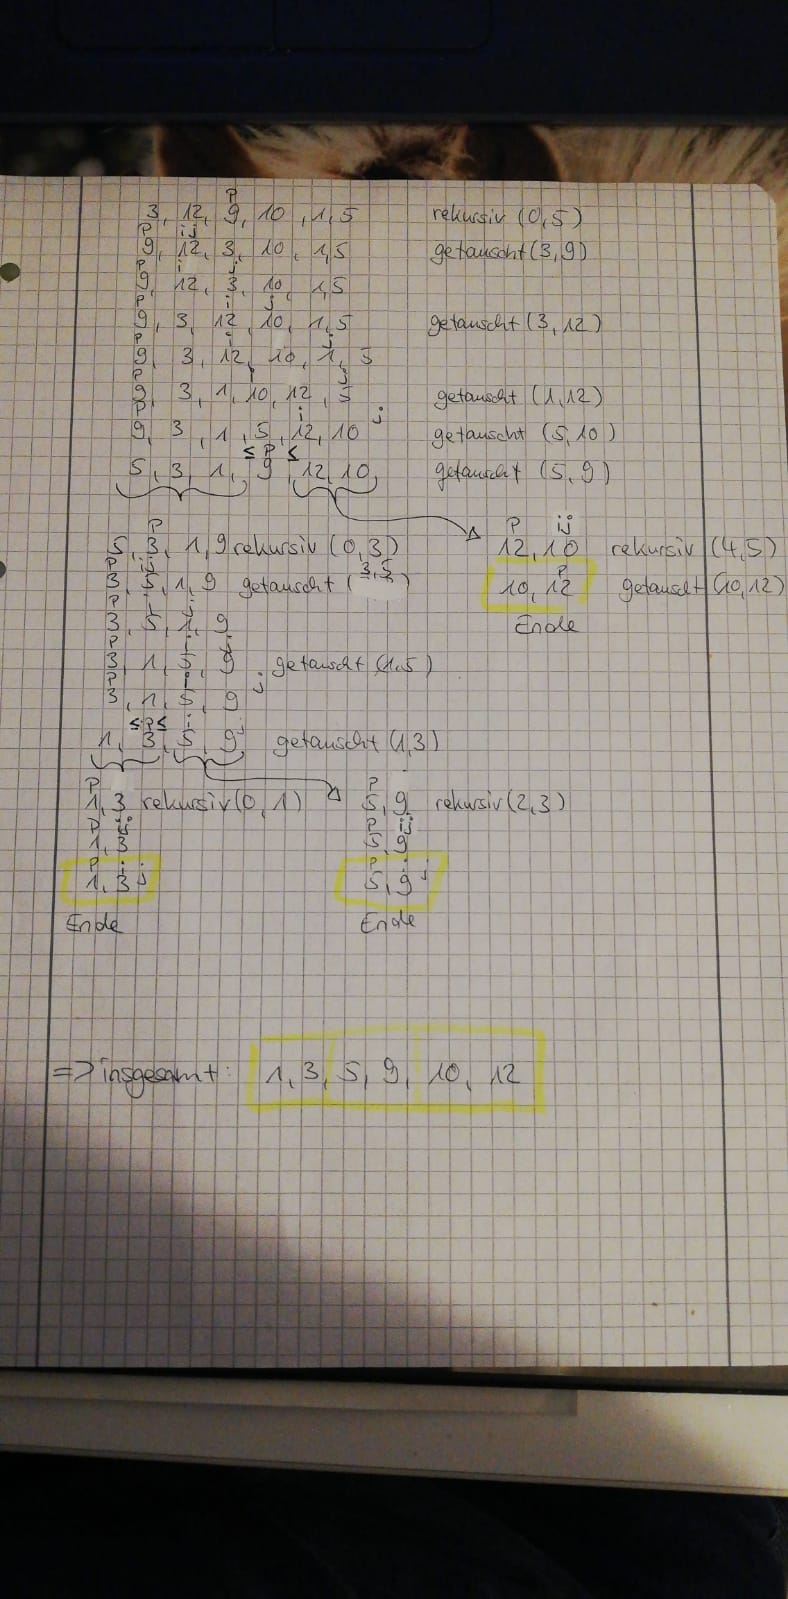 p
3, 12, 9, 10, 1, 5 rekursiv (0,5)
p ij
9, 12, 3, 10, 1, 5 getauscht (3,9)
p i j
9, 12, 3, 10, 1, 5
p i j
9, 3, 12, 10, 1, 5 getauscht (3,12)
p i j
9, 3, 12, 10, 1, 5
p i j
9, 3, 1, 10, 12, 5 getauscht (1,12)
p i j
9, 3, 1, 5, 12, 10 getauscht (5,10)
≤ p ≤
5, 3, 1, 9, 12, 10, getauscht (5,9)
p
5, 3, 1, 9 rekursiv (0,3)
p ij
3, 5, 1, 9 getauscht (3,5)
p i j
3, 5, 1, 9
p i j
3, 1, 5, 9 getauscht (1,5)
p i j
3, 1, 5, 9
≤ p ≤ i j
1, 3, 5, 9 getauscht (1,3)
p ij
12, 10 rekursiv (4,5)
p
10, 12 getauscht (10,12)
Ende
p
1, 3 rekursiv (0,1)
p ij
1, 3
p i j
1, 3
Ende
p
5, 9 rekursiv (2,3)
p ij
5, 9
p i j
5, 9
Ende
=> insgesamt: 1, 3, 5, 9, 10, 12